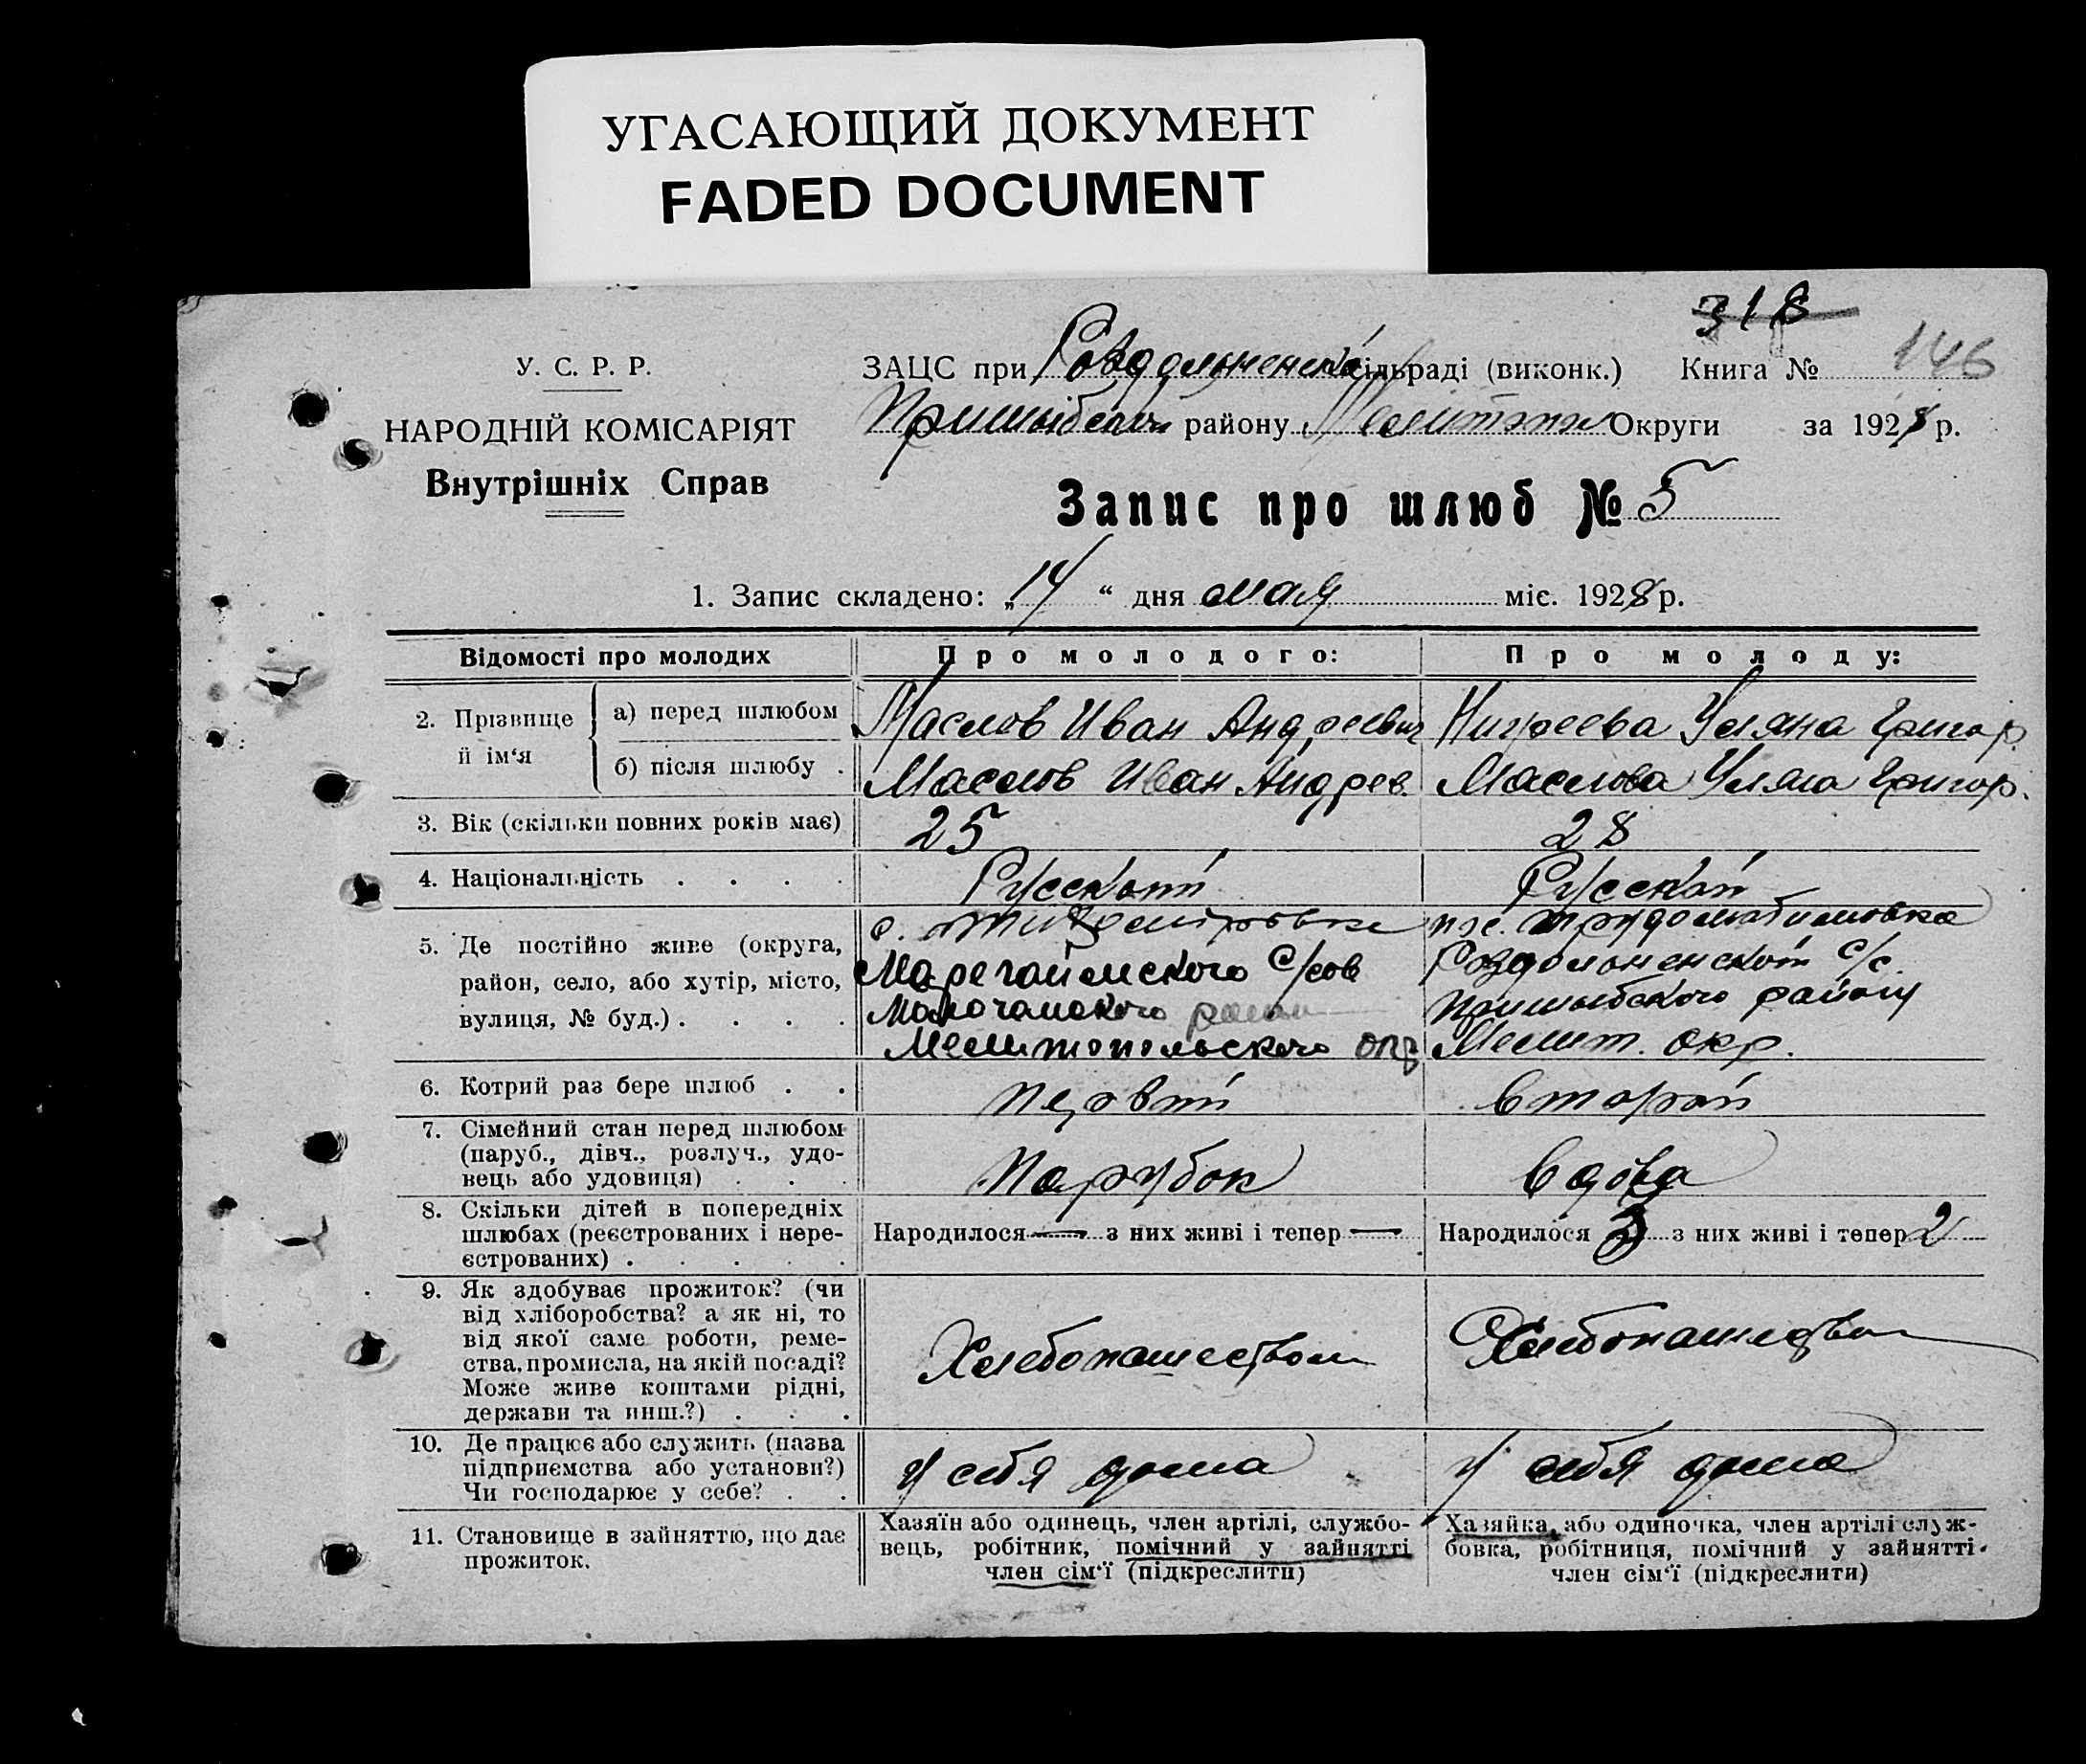 УГАСАЮЩИЙ ДОКУМЕНТ
FADED DOCUMENT
318
146
У. С. Р. Р.
НАРОДНІЙ КОМІСАРІЯТ
Внутрішніх Справ
ЗАЦС при сільраді (виконк.) Книга №
району Округи за 1928 р.
Запис про шлюб № 5
1. Запис складено: „14“ дня мая міс. 1928 р.
Відомості про молодих
Про молодого:
Про молоду:
2. Прізвище й ім‘я
а) перед шлюбом
Маслов Иван Андреевич
Уляна Григор.
б) після шлюбу .
Маслов Иван Андрев.
Маслова Уляна Григор.
3. Вік (скільки повних років має)
25
28
4. Національність . . . .
Русский
Русский
5. Де постійно живе (округа,
район, село, або хутір, місто,
вулиця, № буд.) . . . .
с.
с/сов
Мелитопольского окр
пос. Трудолюбимовка
с/с.
Пришибского району
Мелит. окр.
6. Котрий раз бере шлюб . .
первий
второй
7. Сімейний стан перед шлюбом
(паруб., дівч., розлуч., удо-
вець або удовиця) . . .
Парубок
вдова
8. Скільки дітей в попередніх
шлюбах (реєстрованих і нере-
єстрованих) . . . . .
Народилося — з них живі і тепер —
Народилося 3 з них живі і тепер 2
9. Як здобуває прожиток? (чи
від хліборобства? а як ні, то
від якої саме роботи, реме-
ства, промисла, на якій посаді?
Може живе коштами рідні,
держави та инш.?) . . .
Хлебопашеством
Хлебопашество
10. Де працює або служить (назва
підприємства або установи?)
Чи господарює у себе? . .
у себя дома
у себя дома
11. Становище в зайняттю, що дає
прожиток.
Хазяїн або одинець, член артілі, службо-
вець, робітник, помічний у зайнятті
член сім‘ї (підкреслити)
Хазяйка, або одиночка, член артілі служ-
бовка, робітниця, помічний у зайнятті
член сім‘ї (підкреслити)